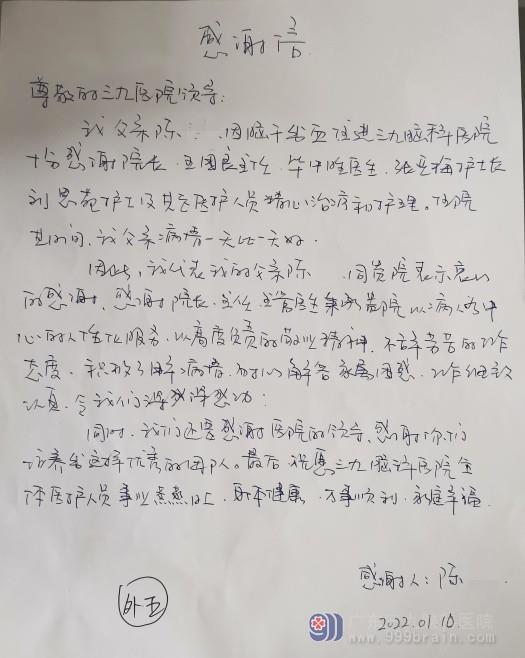 感谢信
尊敬的三九医院领导:
我父亲陈 因脑干出血住进三九脑科医院
十分感谢院长、王国良主任、毕 胜医生、张 梅护士长
刘思 护士以及其它医护人员精心治疗和护理。住院
其间,我父亲病情一天比一天好.
因此,我代表我的父亲陈 向贵院表示衷心
的感谢,感谢院长、主任、主管医生 贵院以病人为中
心的人性化服务、以高度负责的敬业精神、不辞劳苦的工作
态度、积极了解病情、耐心解答家属困惑、工作细致
认真,令我们深感 感动:
同时,我们还要感谢医院的领导,感谢你们
培养出这样优秀的团队。最后祝愿三九脑科医院全
体医护人员事业蒸蒸日上、身体健康、万事顺利、家庭幸福.
感谢人:陈
外五
2022.01.10
www.999brain.com